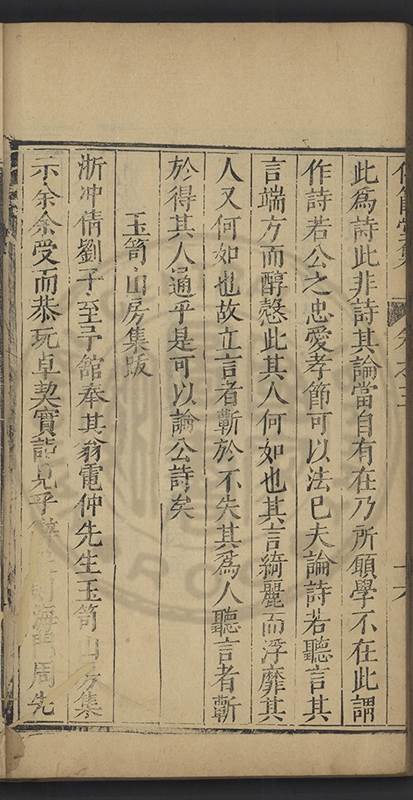 卷之三
此爲詩此非詩其論當自有在乃所願學不在此謂
作詩若公之忠愛孝節可以法已夫論詩若聽言其
言端方而醇慤此其人何如也其言綺麗而浮靡其
人又何如也故立言者蘄於不失其爲人聽言者蘄
於得其人通乎是可以論公詩矣
玉笥山房集䟦
浙冲倩劉子至予舘奉其翁電仲先生玉笥山房集
示余余受而恭玩卓契實詣見乎海門周先